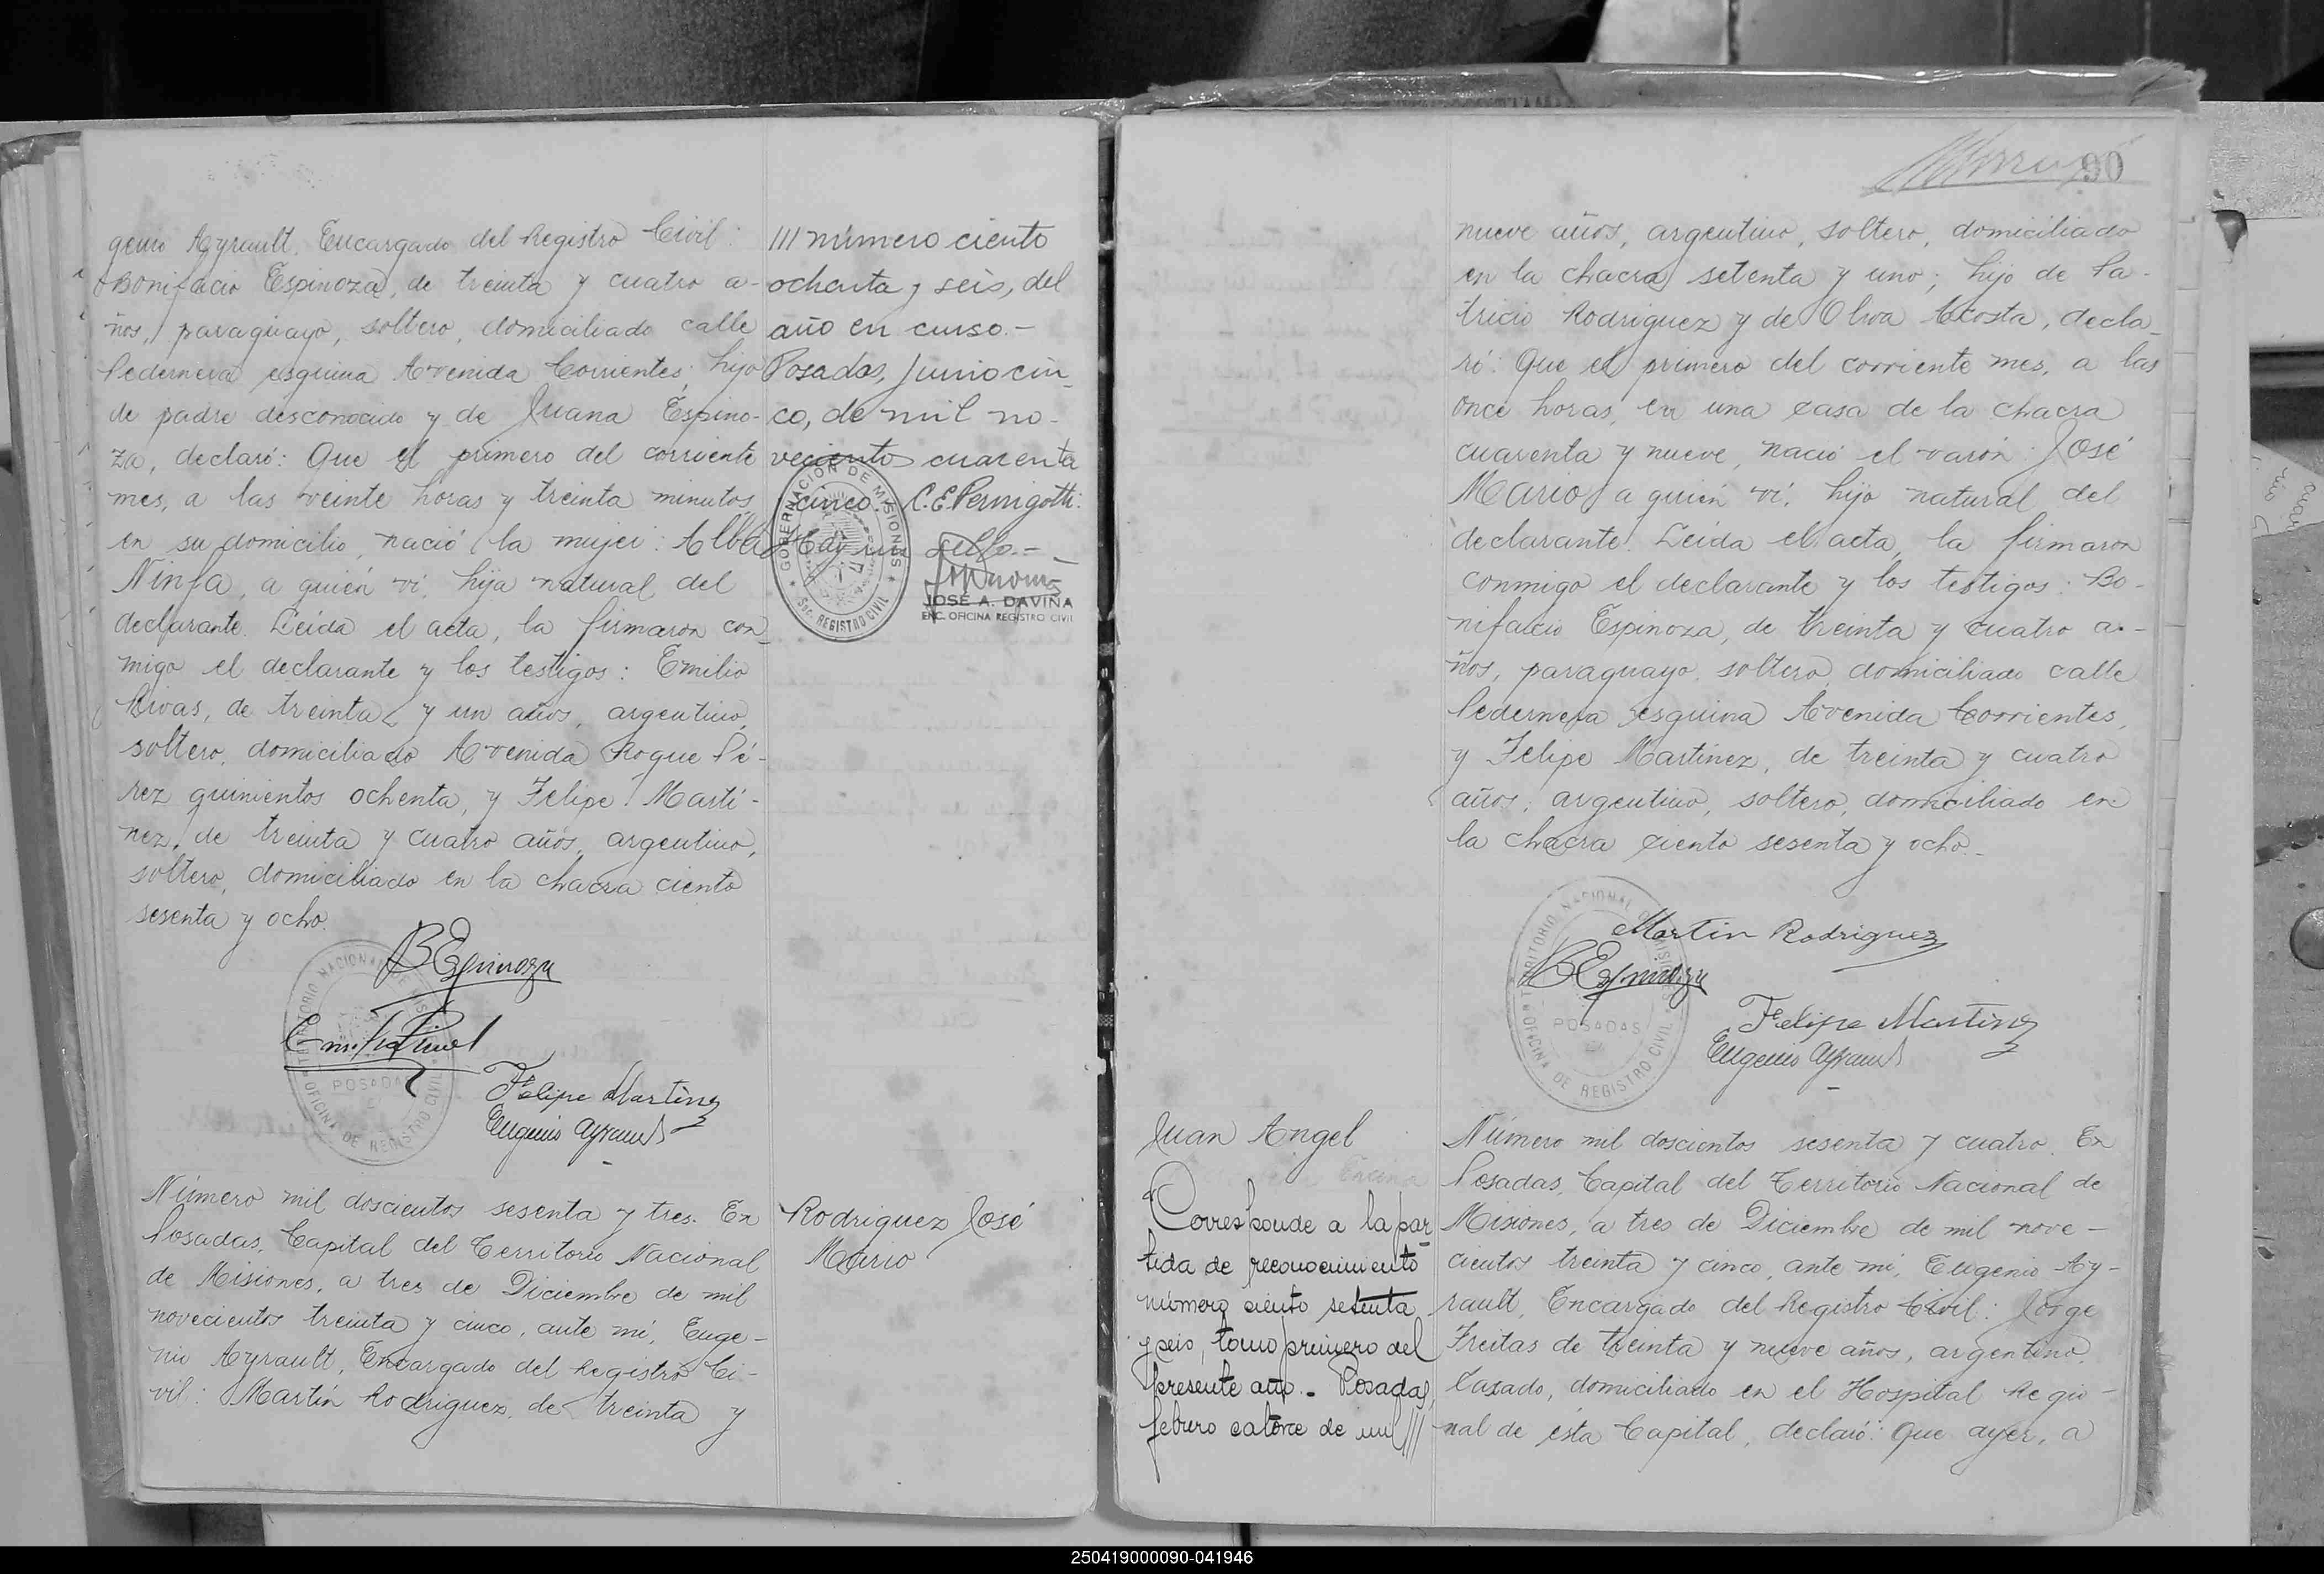 genio Ayrault, Encargado del Registro Civil:
Bonifacio Espinoza, de treinta y cuatro a-
ños, paraguayo, soltero, domiciliado calle
Pedernera esquina Avenida Corrientes; hijo
de padre desconocido y de Juana Espino-
za, declaró: Que el primero del corriente
mes, a las veinte horas y treinta minutos,
en su domicilio, nació la mujer: Alba
Ninfa, a quién ví, hija natural del
declarante. Leída el acta, la firmaron con-
migo el declarante y los testigos: Emilio
Rivas, de treinta y un años, argentino,
soltero, domiciliado Avenida Roque Pé-
rez quinientos ochenta, y Felipe Martí-
nez, de treinta y cuatro años, argentino,
soltero, domiciliado en la chacra ciento
sesenta y ocho.
BEspinoza
Felipe Martinez
Eugenio Ayrault
TERRITORIO NACIONAL DE MISIONES
POSADAS
OFICINA DE REGISTRO CIVIL
Número mil doscientos sesenta y tres. En
Posadas, Capital del Territorio Nacional
de Misiones, a tres de Diciembre de mil
novecientos treinta y cinco, ante mí, Euge-
nio Ayrault, Encargado del Registro Ci-
vil: Martín Rodriguez, de treinta y
III número ciento
ochenta y seis, del
año en curso.-
Posadas, Junio cin-
co, de mil no-
veciento cuarenta
cinco. C.E.Pernigotti:
Hay un sello.-
GOBERNACION DE MISIONES
Sec. REGISTRO CIVIL
JOSÉ A. DAVIÑA
ENC. OFICINA REGISTRO CIVIL
Rodriguez José
Mario
90
nueve años, argentino, soltero, domiciliado
en la chacra setenta y uno; hijo de Pa-
tricio Rodriguez y de Oliva Acosta, decla-
ró: Que el primero del corriente mes, a las
once horas, en una casa de la chacra
cuarenta y nueve, nació el varón: José
Mario, a quién ví, hijo natural del
declarante. Leída el acta, la firmaron
conmigo el declarante y los testigos: Bo-
nifacio Espinoza, de treinta y cuatro a-
ños, paraguayo, soltero, domiciliado calle
Pedernera esquina Avenida Corrientes,
y Felipe Martínez, de treinta y cuatro
años, argentino, soltero, domiciliado en
la chacra ciento sesenta y ocho.-
Martin Rodriguez
BEspinoza
Felipe Martinez
Eugenio Ayrault
TERRITORIO NACIONAL DE MISIONES
POSADAS
OFICINA DE REGISTRO CIVIL
Juan Angel
Encina
Corresponde a la par-
tida de reconocimiento
número ciento setenta
y seis, tomo primero del
presente año.- Posadas,
febrero catorce de mil III
Número mil doscientos sesenta y cuatro. En
Posadas, Capital del Territorio Nacional de
Misiones, a tres de Diciembre de mil nove-
cientos treinta y cinco, ante mí, Eugenio Ay-
rault, Encargado del Registro Civil: Jorge
Freitas de treinta y nueve años, argentino,
casado, domiciliado en el Hospital Regio-
nal de ésta Capital, declaró: Que ayer, a
250419000090-041946